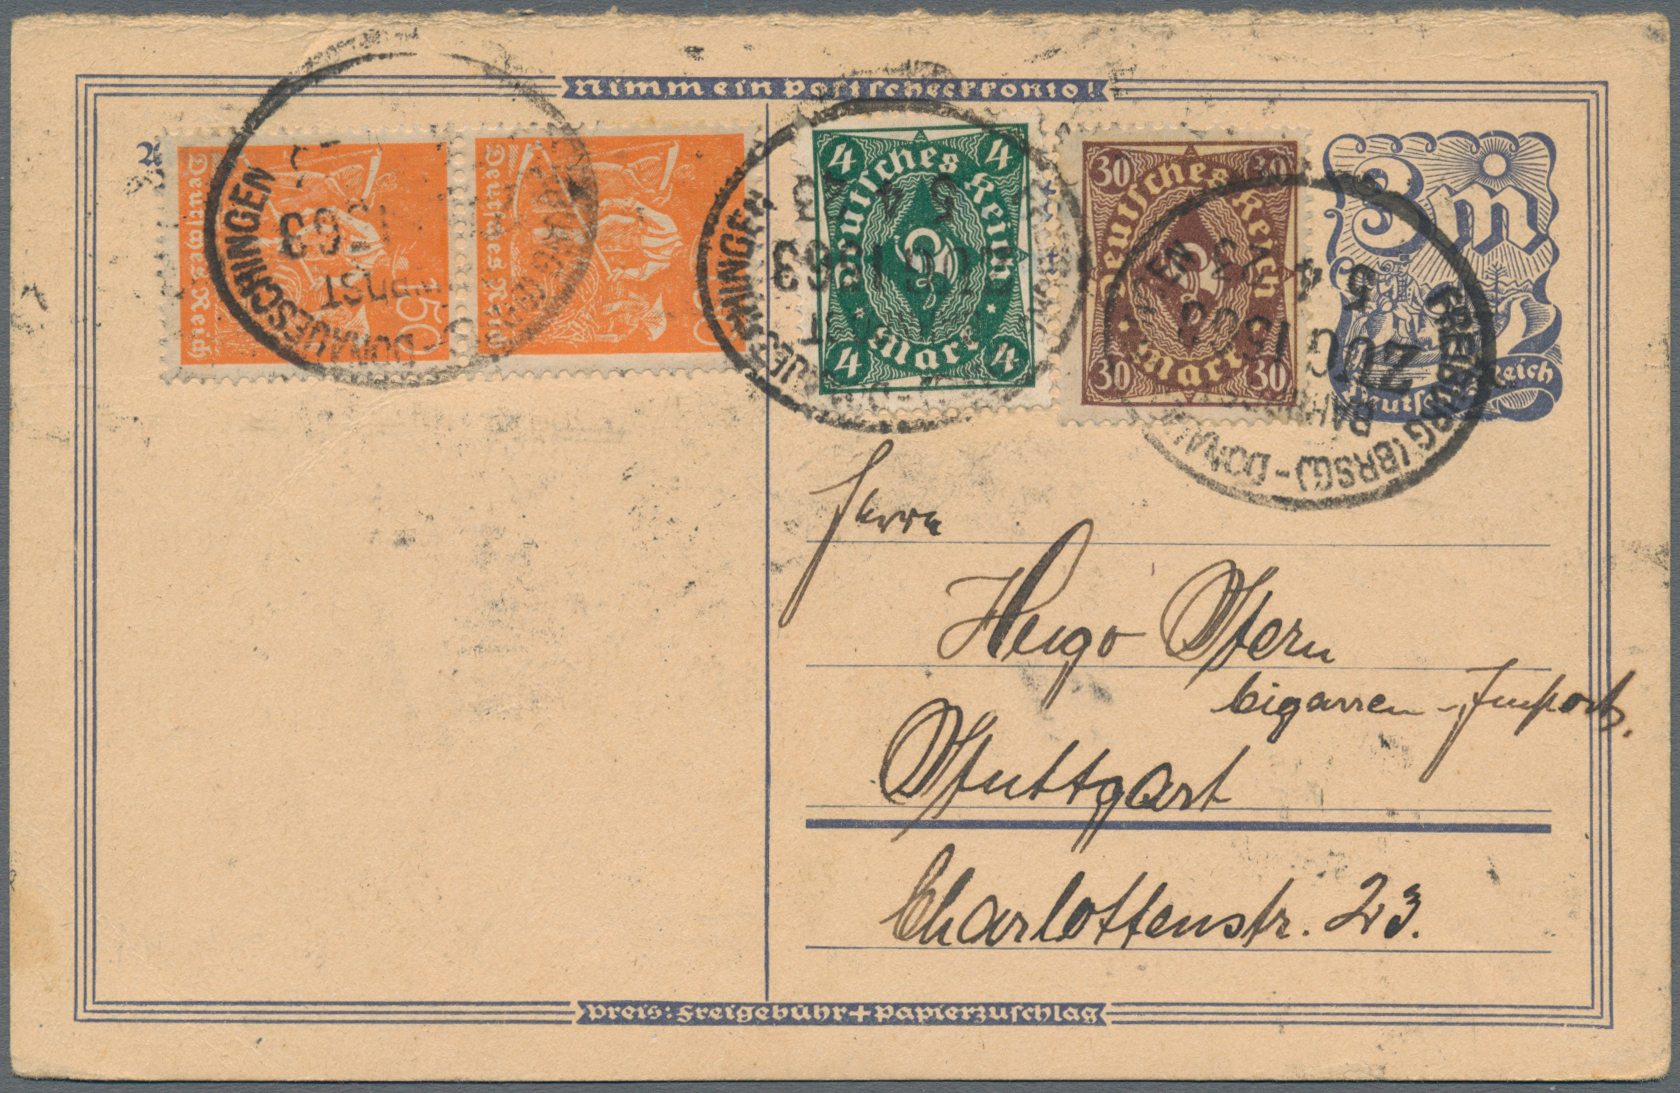 Nimm ein Postscheckkonto!
Deutsches Reich
150
Deutsches Reich
4 4
Deutsches Reich
Mark
4 4
30 30
Deutsches Reich
Mark
30 30
3 m
Deutsches Reich
DONAUESCHINGEN
5 4 23
ZUG 1563
BAHNPOST
FREIBURG (BRSG) - DONAUESCHINGEN
5 4 23
ZUG 1563
BAHNPOST
Herrn
Hugo Stern
Cigarren-Import.
Stuttgart
Charlottenstr. 23.
Preis: Freigebühr + Papierzuschlag